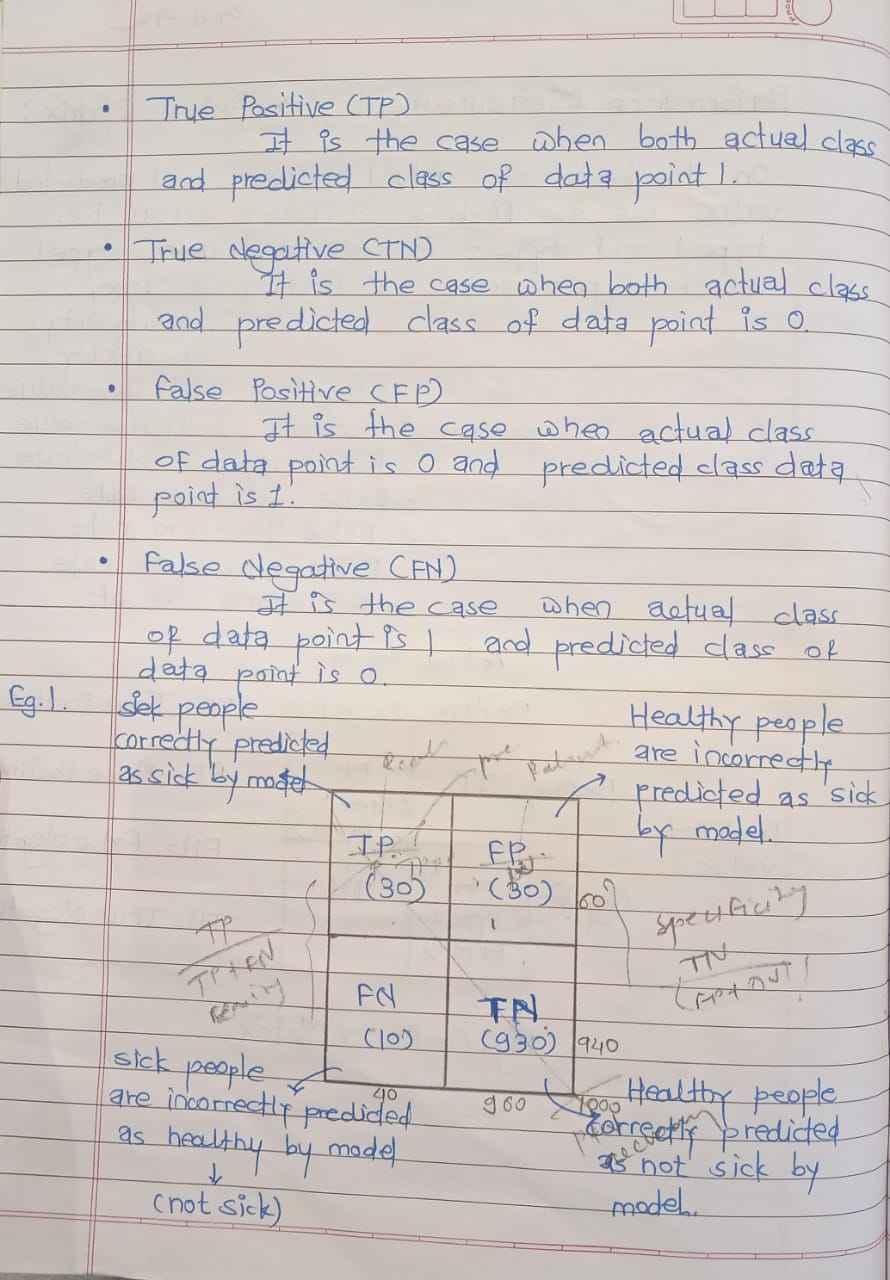 • True Positive (TP)
It is the case when both actual class
and predicted class of data point 1.
• True Negative (TN)
It is the case when both actual class
and predicted class of data point is 0.
• False Positive (FP)
It is the case when actual class
of data point is 0 and predicted class data
point is 1.
• False Negative (FN)
It is the case when actual class
of data point is 1 and predicted class of
data point is 0.
Eg.1.
sick people
correctly predicted
as sick by model
Healthy people
are incorrectly
predicted as sick
by model.
TP
(30)
FP
(30)
60
TP
TP+FN
Specificity
TN
FN
(10)
TN
(930)
940
40
960
1000
sick people
are incorrectly predicted
as healthy by model
↓
(not sick)
Healthy people
correctly predicted
as not sick by
model.